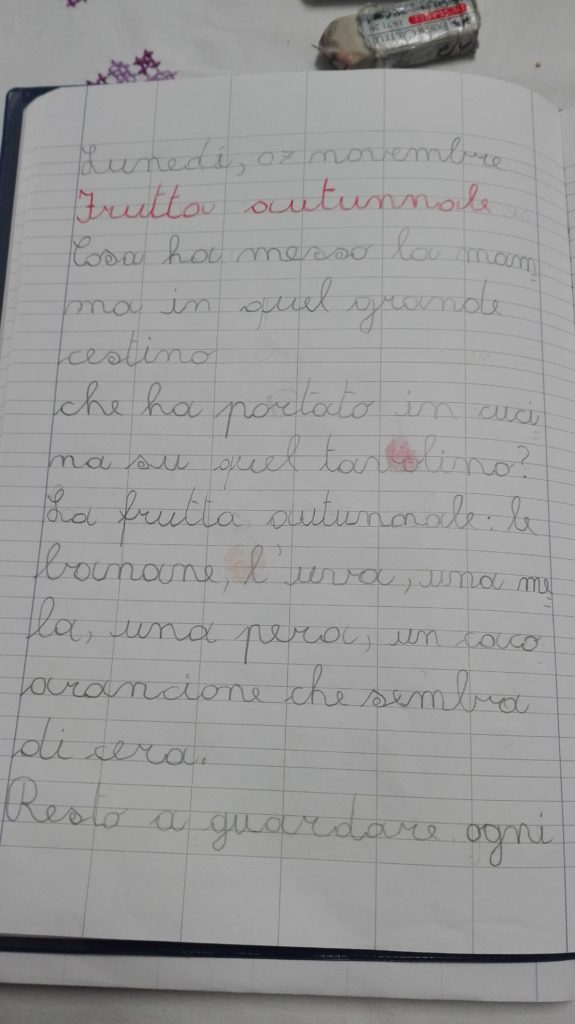 Lunedì, 07 novembre
Frutta autunnale
Cosa ha messo la mam
ma in quel grande
cestino
che ha portato in cuci
na su quel tavolino?
La frutta autunnale: le
banane, l'uva, una me
la, una pera, un caco
arancione che sembra
di cera.
Resto a guardare ogni